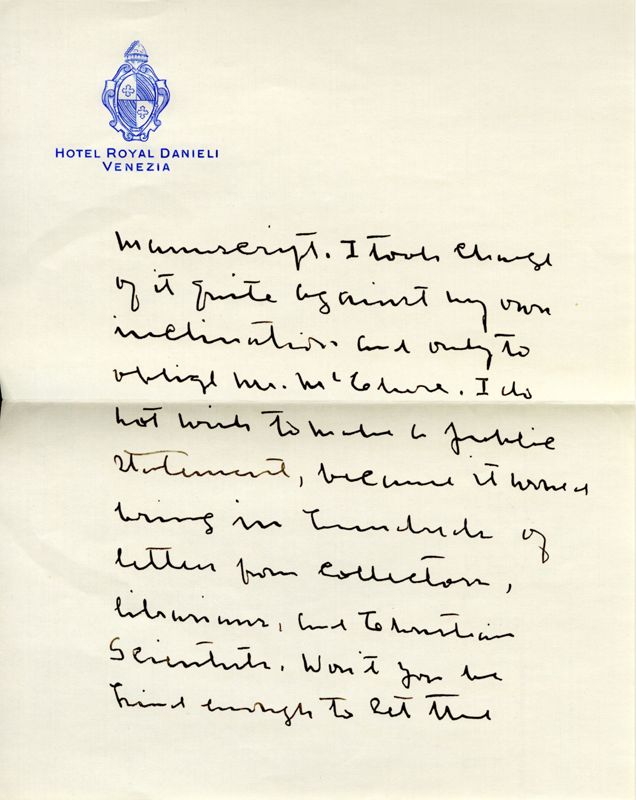 HOTEL ROYAL DANIELI
VENEZIA
manuscript. I took charge
of it quite against my own
inclination and only to
oblige Mr. McClure. I do
not wish to make a public
statement, because it would
bring in hundreds of
letters from collectors,
librarians, and Christian
Scientists. Won't you be
kind enough to let the